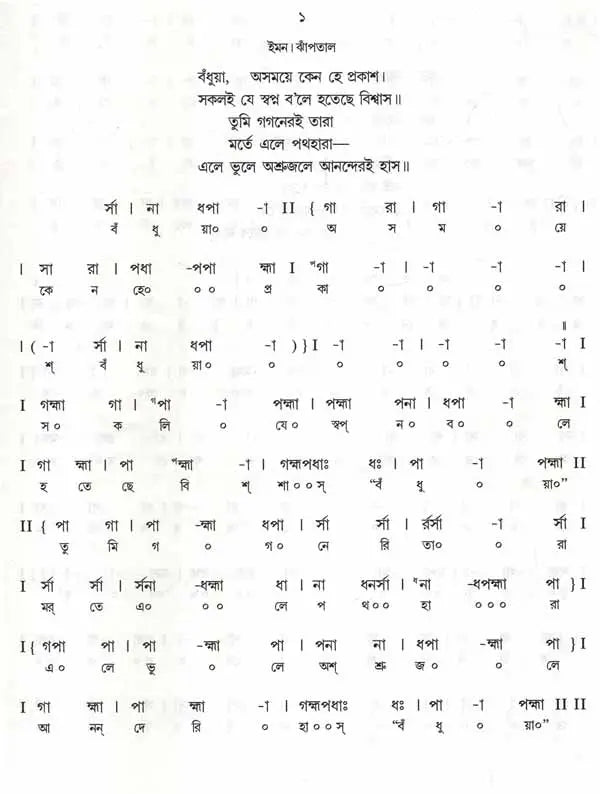 ১
ইমন। ঝাঁপতাল
বঁধুয়া, অসময়ে কেন হে প্রকাশ।
সকলই যে স্বপ্ন ব'লে হতেছে বিশ্বাস॥
তুমি গগনেরই তারা
মর্তে এলে পথহারা—
এলে ভুলে অশ্রুজলে আনন্দেরই হাস॥
র্সা । না ধপা -া II { গা রা । গা -া রা ।
বঁ ধু য়া০ ০ অ স ম ০ য়ে
। সা রা । পধা -পপা হ্মা I ᵖগা -া । -া -া -া ।
কে ন হে০ ০০ প্র কা ০ ০ ০ ০
॥
। (-া র্সা । না ধপা -া )} I -া -া । -া -া -া I
শ্ বঁ ধু য়া০ ০ ০ ০ ০ ০ শ্
I গহ্মা গা । ᵖপা -া পহ্মা । পহ্মা পনা । ধপা -া হ্মা I
স০ ক লি ০ যে০ স্বপ্ ন০ ব০ ০ লে
I গা হ্মা । পা ᵖহ্মা -া । গহ্মপধাঃ ধঃ । পা -া পহ্মা II
হ তে ছে বি শ্ শা০০স্ "বঁ ধু ০ য়া০"
II { পা গা । পা -হ্মা ধপা । র্সা র্সা । র্রর্সা -া র্সা I
তু মি গ ০ গ০ নে রি তা০ ০ রা
I র্সা র্সা । র্সনা -ধহ্মা ধা । না ধনর্সা । ᵈনা -ধপহ্মা পা } I
মর্ তে এ০ ০০ লে প থ০০ হা ০০০ রা
I { গপা পা । পা -হ্মা পা । পনা না । ধপা -হ্মা পা } I
এ০ লে ভু ০ লে অশ্ শ্রু জ০ ০ লে
I গা হ্মা । পা হ্মা -া । গহ্মপধাঃ ধঃ । পা -া পহ্মা II II
আ নন্ দে রি ০ হা০০স্ "বঁ ধু ০ য়া০"